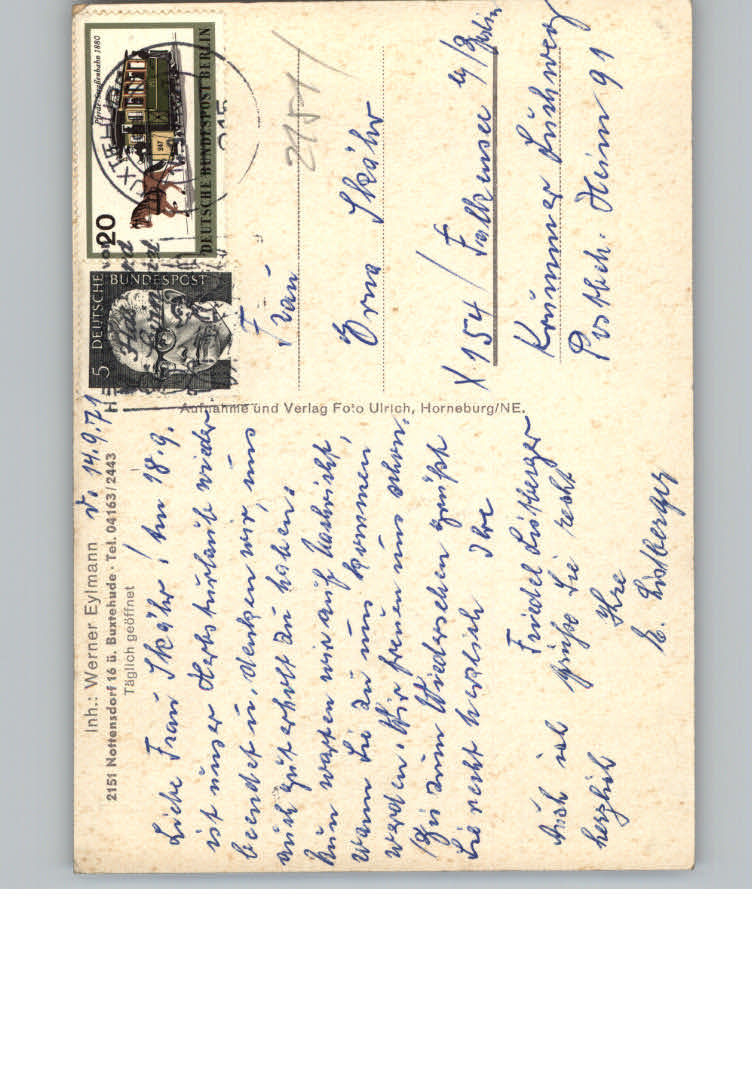 Inh.: Werner Eylmann
2151 Nottensdorf 16 ü. Buxtehude · Tel. 04163/2443
Täglich geöffnet
d. 14.9.71
Liebe Frau Skähr! Am 18.9.
ist unser Herbsturlaub wieder
beendet u. denken wir, uns
auch gut erholt zu haben.
Nun warten wir auf Nachricht,
wann Sie zu uns kommen
werden. Wir freuen uns schon.
Bis zum Wiedersehen grüßt
Sie recht herzlich Ihre
Friedel
Auch ich grüße Sie recht
herzlich Ihre
E.
Aufnahme und Verlag Foto Ulrich, Horneburg/NE.
5 DEUTSCHE BUNDESPOST
20
Pferde-Straßenbahn 1880
DEUTSCHE BUNDESPOST BERLIN
247
2151
Frau
Erna Skähr
X 154 / Falkensee b/Berlin
Krummer Luchweg
Postsch. Heim 91